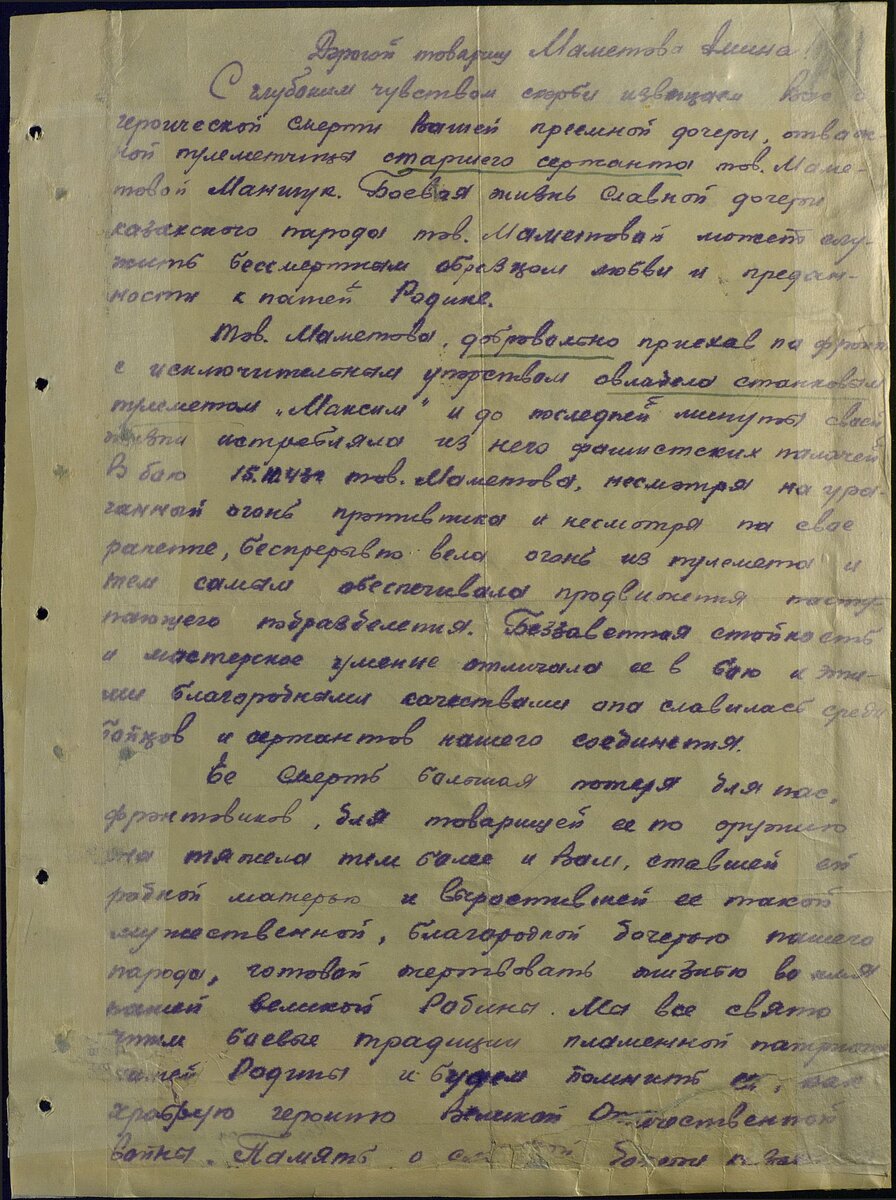 Дорогой товарищ Маметова Амина!
С глубоким чувством скорби извещаем Вас о
героической смерти Вашей приемной дочери, отваж-
ной пулеметчицы старшего сержанта тов. Маме-
товой Маншук. Боевая жизнь славной дочери
казахского народа тов. Маметовой может слу-
жить бессмертным образцом любви и предан-
ности к нашей Родине.
Тов. Маметова, добровольно приехав на фронт
с исключительным упорством овладела станковым
пулеметом „Максим" и до последней минуты своей
жизни истребляла из него фашистских палачей
В бою 15.10.43г тов. Маметова, несмотря на ура-
ганный огонь противника и несмотря на свое
ранение, беспрерывно вела огонь из пулемета и
тем самым обеспечивала продвижения насту-
пающего подразделения. Беззаветная стойкость
и мастерское умение отличала ее в бою и эти-
ми благородными качествами она славилась среди
бойцов и сержантов нашего соединения.
Ее смерть большая потеря для нас,
фронтовиков, для товарищей ее по оружию
она тяжела тем более и Вам, ставшей ей
родной матерью и вырастившей ее такой
мужественной, благородной дочерью нашего
народа, готовой жертвовать жизнью во имя
нашей великой Родины. Мы все свято
чтим боевые традиции пламенной
нашей Родины и будем помнить ее, как
храбрую героиню Великой Отечественной
войны. Память о